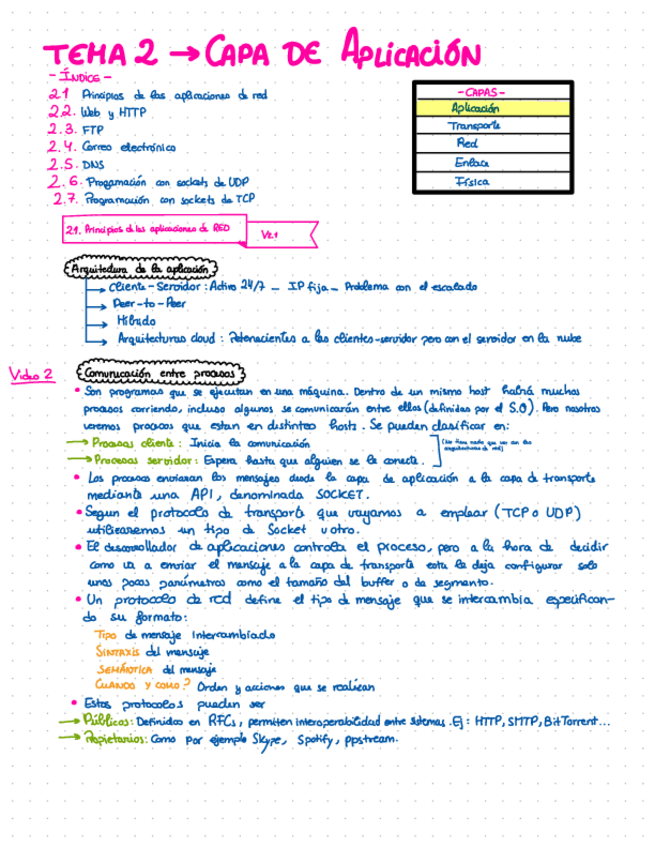 TEMA 2 → CAPA DE APLICACIÓN
- ÍNDICE -
2.1 Principios de las aplicaciones de red
2.2. Web y HTTP
2.3. FTP
2.4. Correo electrónico
2.5. DNS
2.6. Programación con sockets de UDP
2.7. Programación con sockets de TCP
- CAPAS -
Aplicación
Transporte
Red
Enlace
Física
2.1. Principios de las aplicaciones de RED
V2.1
Arquitectura de la aplicación
→ Cliente - Servidor : Activo 24/7 - IP fija - Problema con el escalado
→ Peer-to-Peer
→ Híbrido
→ Arquitecturas cloud : Pertenecientes a las clientes-servidor pero con el servidor en la nube
Video 2
Comunicación entre procesos
• Son programas que se ejecutan en una máquina. Dentro de un mismo host habrá muchos
procesos corriendo, incluso algunos se comunicarán entre ellos (definidas por el S.O). Pero nosotros
veremos procesos que estan en distintos hosts. Se pueden clasificar en:
→ Procesos cliente : Inicia la comunicación
→ Procesos servidor : Espera hasta que alguien se le conecte.
(No tiene nada que ver con las
arquitecturas de red)
• Los procesos enviaran los mensajes desde la capa de aplicación a la capa de transporte
mediante una API, denominada SOCKET.
• Segun el protocolo de transporte que vayamos a emplear (TCP o UDP)
utilizaremos un tipo de Socket u otro.
• El desarrollador de aplicaciones controla el proceso, pero a la hora de decidir
como va a enviar el mensaje a la capa de transporte esta le deja configurar solo
unos pocos parámetros como el tamaño del buffer o de segmento.
• Un protocolo de red define el tipo de mensaje que se intercambia especifican-
do su formato:
Tipo de mensaje intercambiado
SINTAXIS del mensaje
SEMÁNTICA del mensaje
CUANDO Y COMO? Orden y acciones que se realizan
• Estos protocolos pueden ser
→ Públicos: Definidos en RFCs, permiten interoperabilidad entre sistemas. Ej: HTTP, SMTP, BitTorrent...
→ Propietarios: Como por ejemplo Skype, Spotify, ppstream.